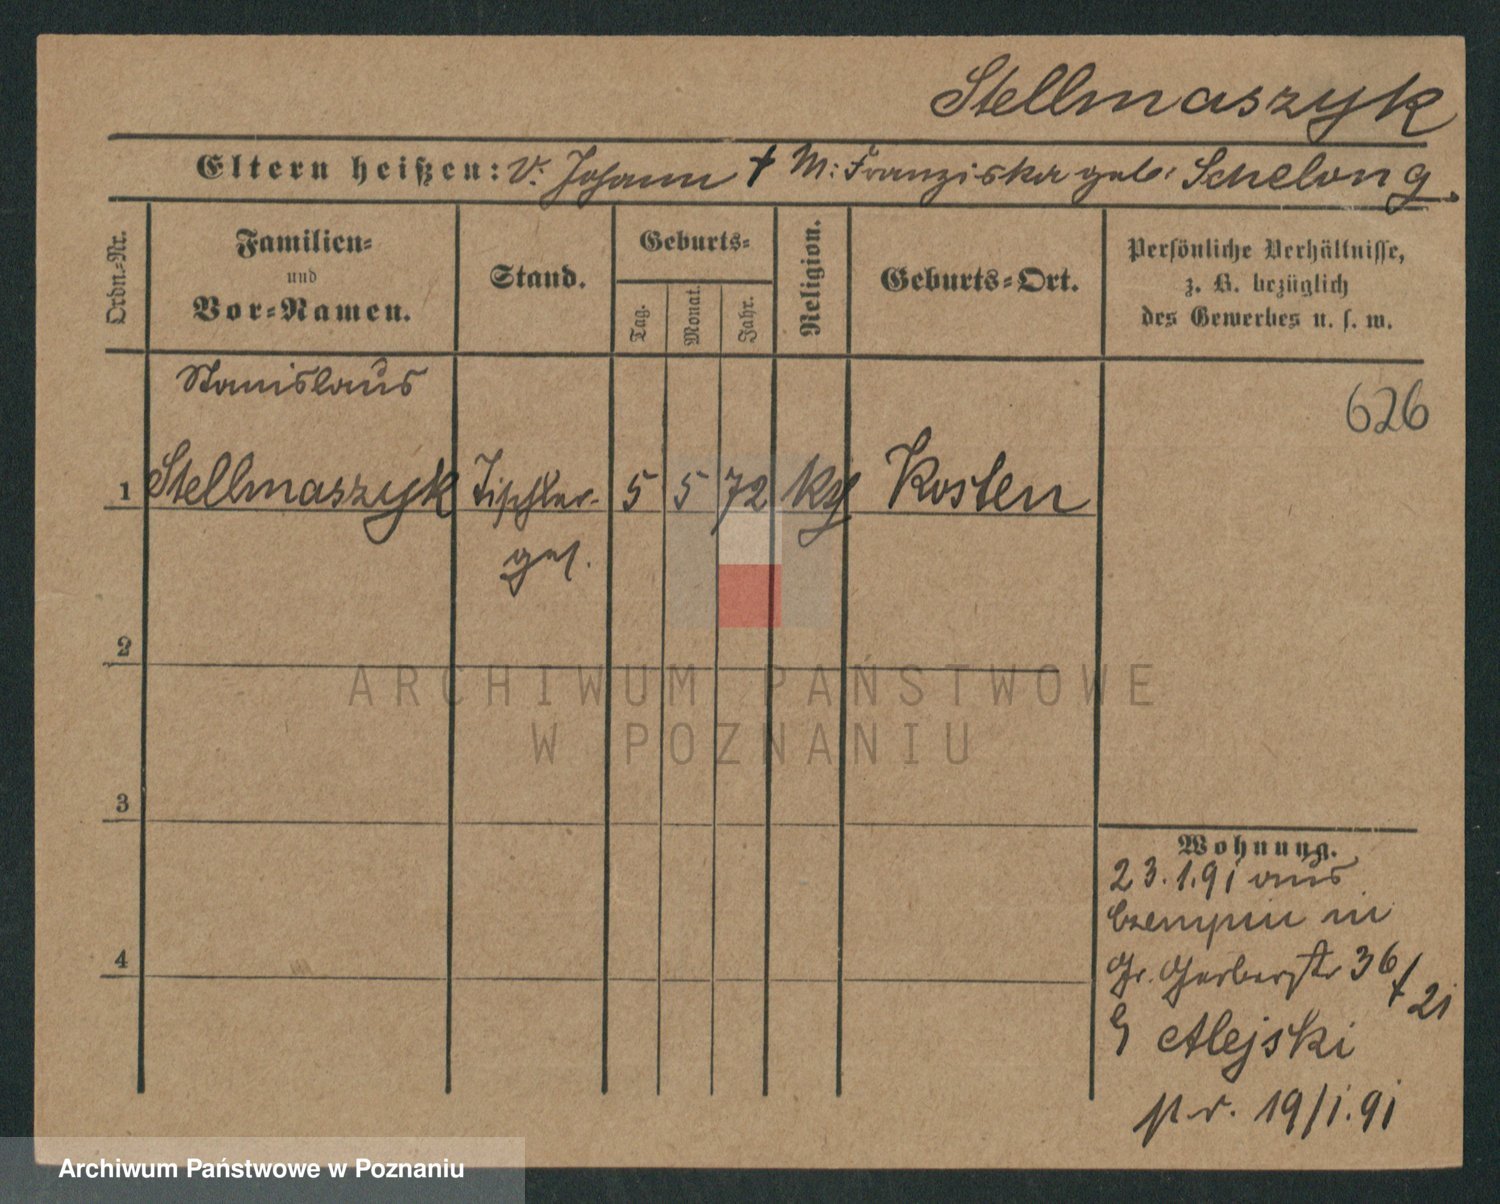 Stellmaszyk
Eltern heißen: V. Johann † M: Franziska geb. Schelong
Ordn.-Nr.
Familien-
und
Vor-Namen.
Stand.
Geburts-
Tag.
Monat.
Jahr.
Religion.
Geburts-Ort.
Persönliche Verhältnisse,
z. B. bezüglich
des Gewerbes u. s. w.
Stanislaus
626
1 Stellmaszyk Tischler- 5 5 72 Kosten
ges.
2
ARCHIWUM PAŃSTWOWE
W POZNANIU
3
Wohnung.
23.1.91 aus
Czempin in
4
Gr. Gerberstr 36/21
Alejski
pr. 19/1.91
Archiwum Państwowe w Poznaniu